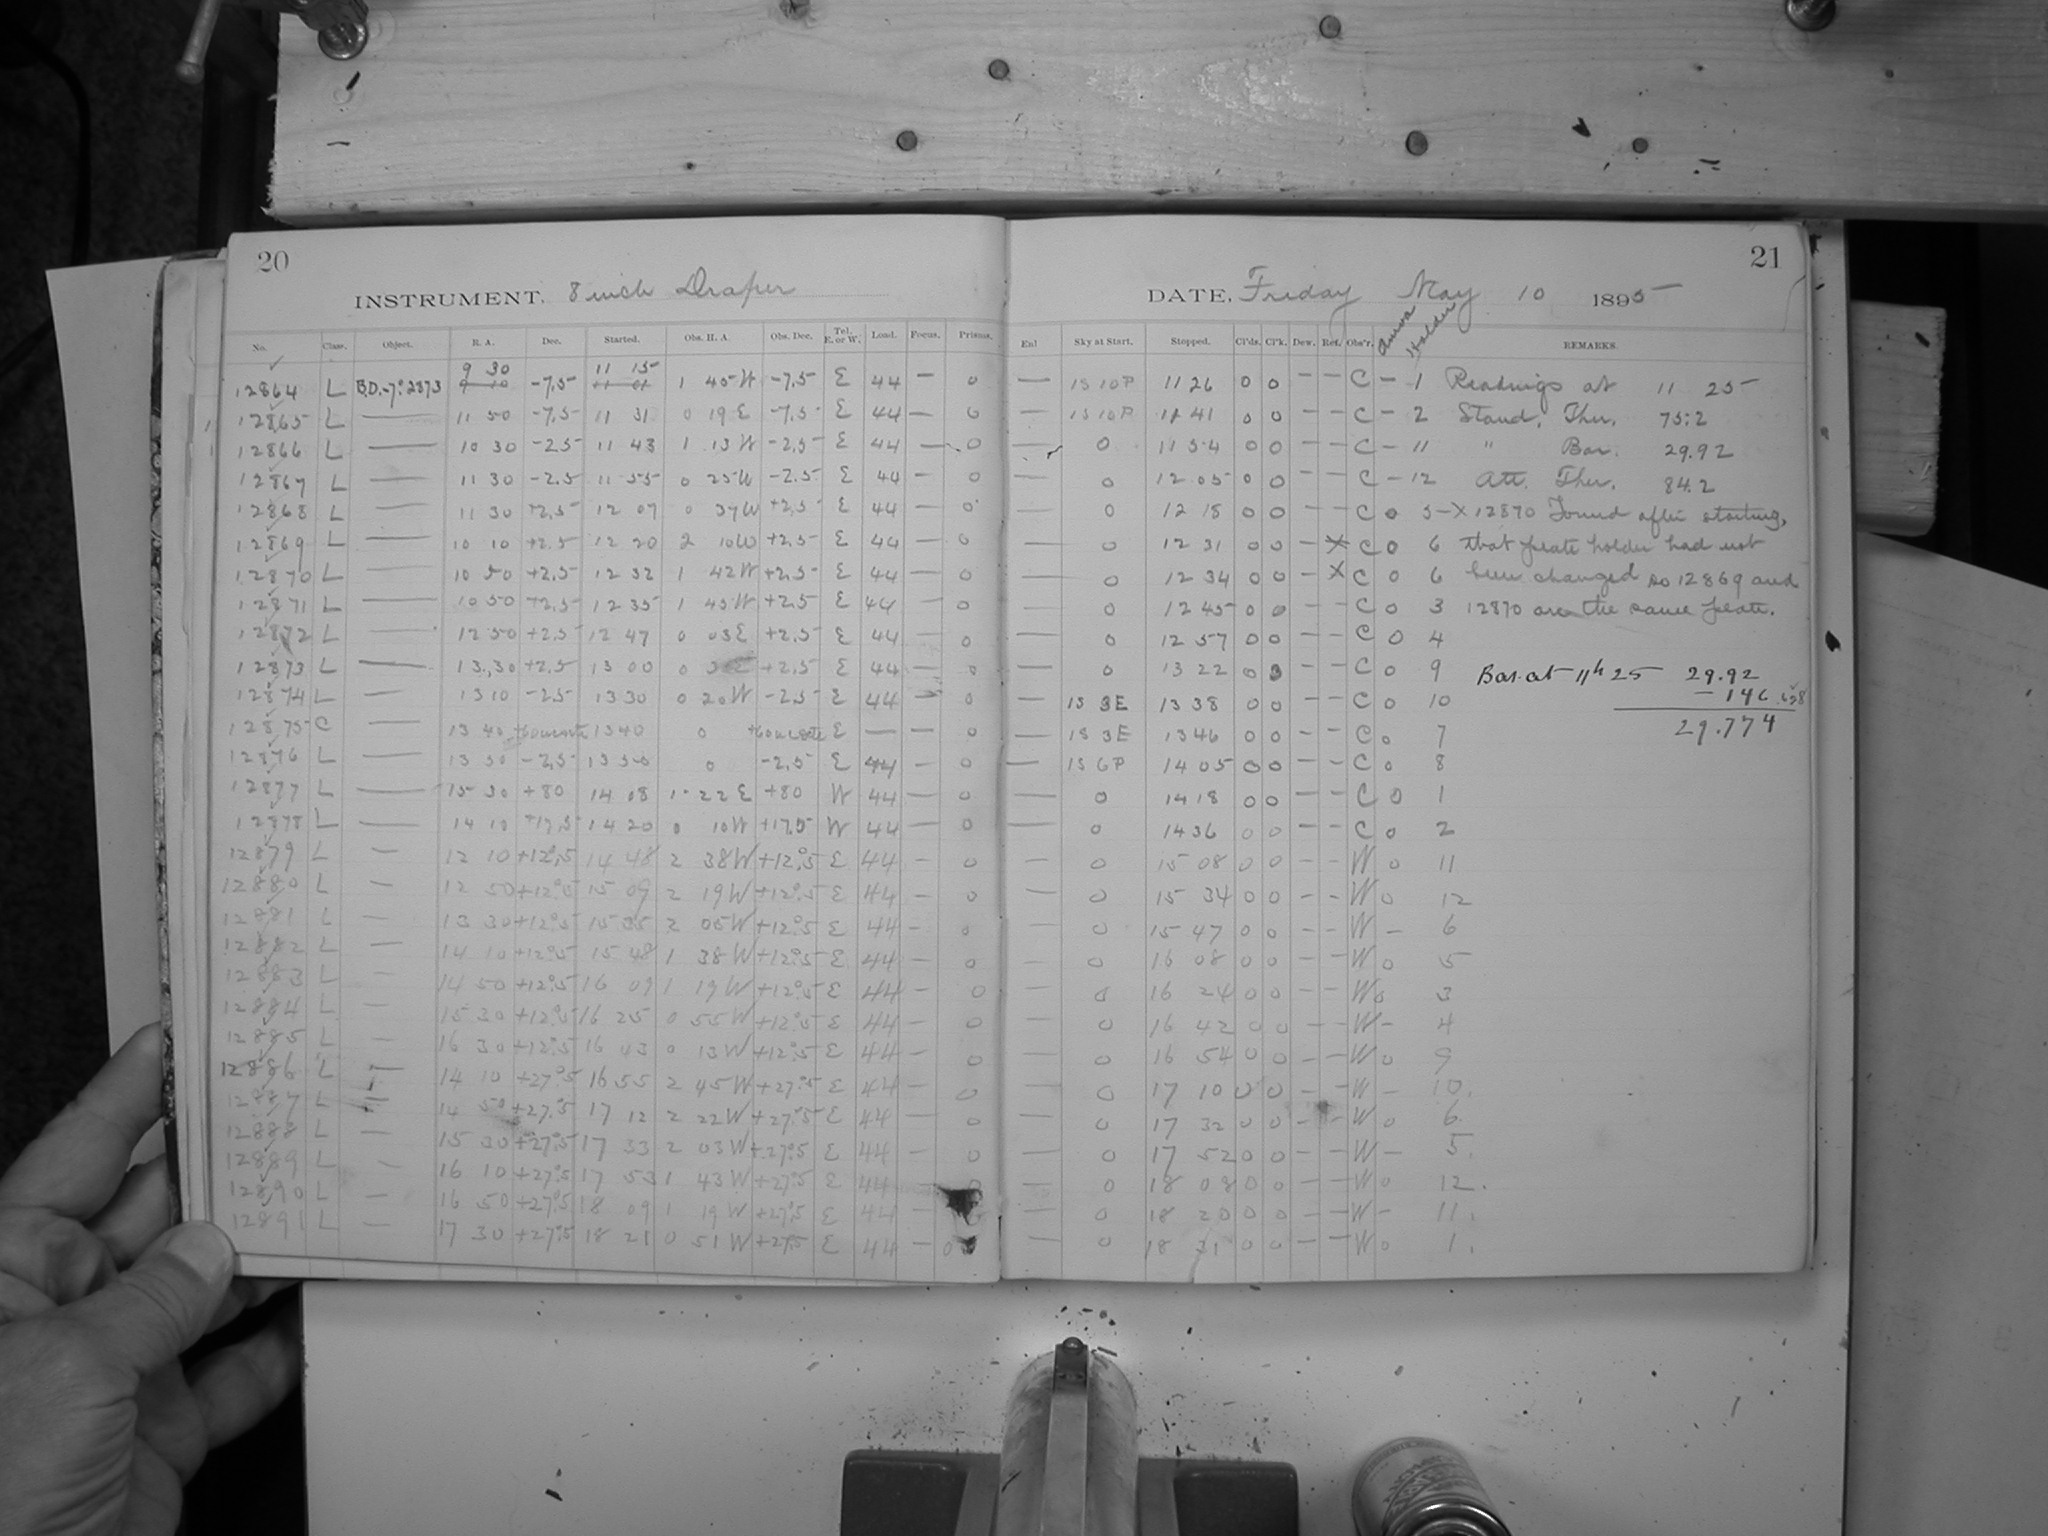 20
INSTRUMENT, 8 inch Draper
No. Class. Object. R. A. Dec. Started. Obs. H. A. Obs. Dec. Tel. E. or W. Load. Focus. Prisms.
9 30 11 15
12864 L B.D.-7°2873 9 10 -7,5 11 01 1 45 W -7,5 E 44 — 0
12865 L — 11 50 -7,5 11 31 0 19 E -7,5 E 44 — 0
12866 L — 10 30 -2.5 11 43 1 13 W -2,5 E 44 — 0
12867 L — 11 30 -2.5 11 55 0 25 W -2.5 E 44 — 0
12868 L — 11 30 +2,5 12 07 0 37 W +2,5 E 44 — 0
12869 L — 10 10 +2.5 12 20 2 10 W +2.5 E 44 — 0
12870 L — 10 50 +2.5 12 32 1 42 W +2.5 E 44 — 0
12871 L — 10 50 +2,5 12 35 1 45 W +2.5 E 44 — 0
12872 L — 12 50 +2.5 12 47 0 03 E +2.5 E 44 — 0
12873 L — 13 30 +2.5 13 00 0 E +2.5 E 44 — 0
12874 L — 13 10 -2.5 13 30 0 20 W -2.5 E 44 — 0
12875 C — 13 40 13 40 0 E — — 0
12876 L — 13 50 -2,5 13 50 0 -2,5 E 44 — 0
12877 L — 15 30 +80 14 08 1 22 E +80 W 44 — 0
12878 L — 14 10 +17,5 14 20 0 10 W +17.5 W 44 — 0
12879 L — 12 10 +12°.5 14 48 2 38 W +12°.5 E 44 — 0
12880 L — 12 50 +12°.5 15 09 2 19 W +12°.5 E 44 — 0
12881 L — 13 30 +12°.5 15 35 2 05 W +12°.5 E 44 — 0
12882 L — 14 10 +12°.5 15 48 1 38 W +12°.5 E 44 — 0
12883 L — 14 50 +12°.5 16 09 1 19 W +12°.5 E 44 — 0
12884 L — 15 30 +12°.5 16 25 0 55 W +12°.5 E 44 — 0
12885 L — 16 30 +12°.5 16 43 0 13 W +12°.5 E 44 — 0
12886 L — 14 10 +27°.5 16 55 2 45 W +27°.5 E 44 — 0
12887 L — 14 50 +27°.5 17 12 2 22 W +27°.5 E 44 — 0
12888 L — 15 30 +27°.5 17 33 2 03 W +27°.5 E 44 — 0
12889 L — 16 10 +27°.5 17 53 1 43 W +27°.5 E 44 — 0
12890 L — 16 50 +27°.5 18 09 1 19 W +27°.5 E 44 —
12891 L — 17 30 +27°.5 18 21 0 51 W +27°.5 E 44 — 0
21
DATE, Friday May 10 1895
Sky at Start. Stopped. Cl'ds. Cl'k. Dew. Ref. Obs'r. Holder REMARKS.
— 1S 10P 11 26 0 0 – – C – 1 Readings at 11 25
— 1S 10P 11 41 0 0 – – C – 2 Stand. Ther. 75.2
— 0 11 54 0 0 – – C – 11 " Bar. 29.92
— 0 12 05 0 0 – – C – 12 Att. Ther. 84.2
— 0 12 18 0 0 – – C 0 5 – X 12870 Found after starting,
— 0 12 31 0 0 – X C 0 6 that plate holder had not
— 0 12 34 0 0 – X C 0 6 been changed so 12869 and
— 0 12 45 0 0 – – C 0 3 12870 are the same plate.
— 0 12 57 0 0 – – C 0 4
— 0 13 22 0 0 – – C 0 9 Bar. at 11h 25 29.92
— 1S 3E 13 38 0 0 – – C 0 10 – 146
— 1S 3E 13 46 0 0 – – C 0 7 29.774
— 1S 6P 14 05 0 0 – – C 0 8
— 0 14 18 0 0 – – C 0 1
— 0 14 36 0 0 – – C 0 2
— 0 15 08 0 0 – – W 0 11
— 0 15 34 0 0 – – W 0 12
— 0 15 47 0 0 – – W – 6
— 0 16 08 0 0 – – W 0 5
— 0 16 24 0 0 – – W 0 3
— 0 16 42 0 0 – – W – 4
— 0 16 54 0 0 – – W 0 9
— 0 17 10 0 0 – – W – 10.
— 0 17 32 0 0 – – W 0 6.
— 0 17 52 0 0 – – W – 5.
— 0 18 08 0 0 – – W 0 12.
— 0 18 20 0 0 – – W – 11.
— 0 18 31 0 0 – – W 0 1.